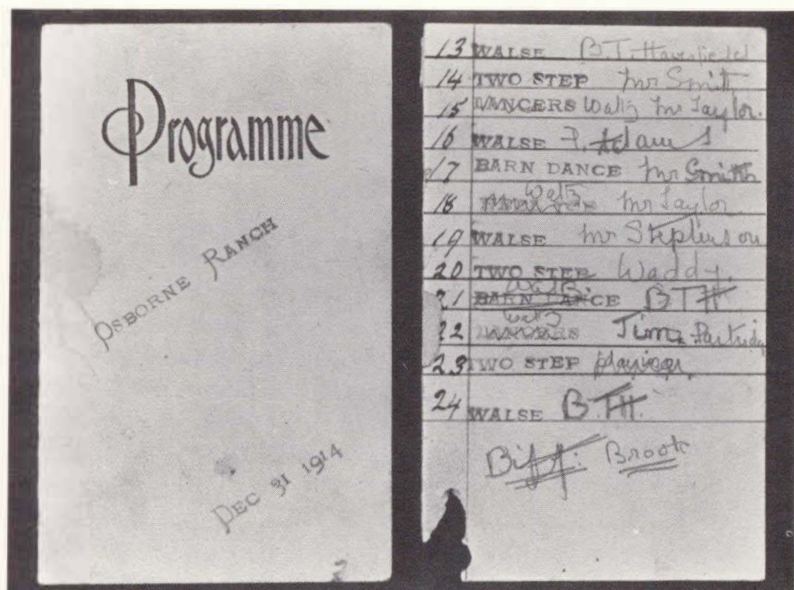 Programme
OSBORNE RANCH
DEC 31 1914
13 WALSE B.T. Haversfield
14 TWO STEP Mr Smith
15 LANCERS Waltz Mr Taylor.
16 WALSE F. Adams
17 BARN DANCE Mr Smith
18 Waltz Mr Taylor
19 WALSE Mr Stephenson
20 TWO STEP Waddy.
21 BARN DANCE Waltz BTH
22 LANCERS Waltz Jim Partridge
23 TWO STEP
24 WALSE B.T.H.
Biff: Brook